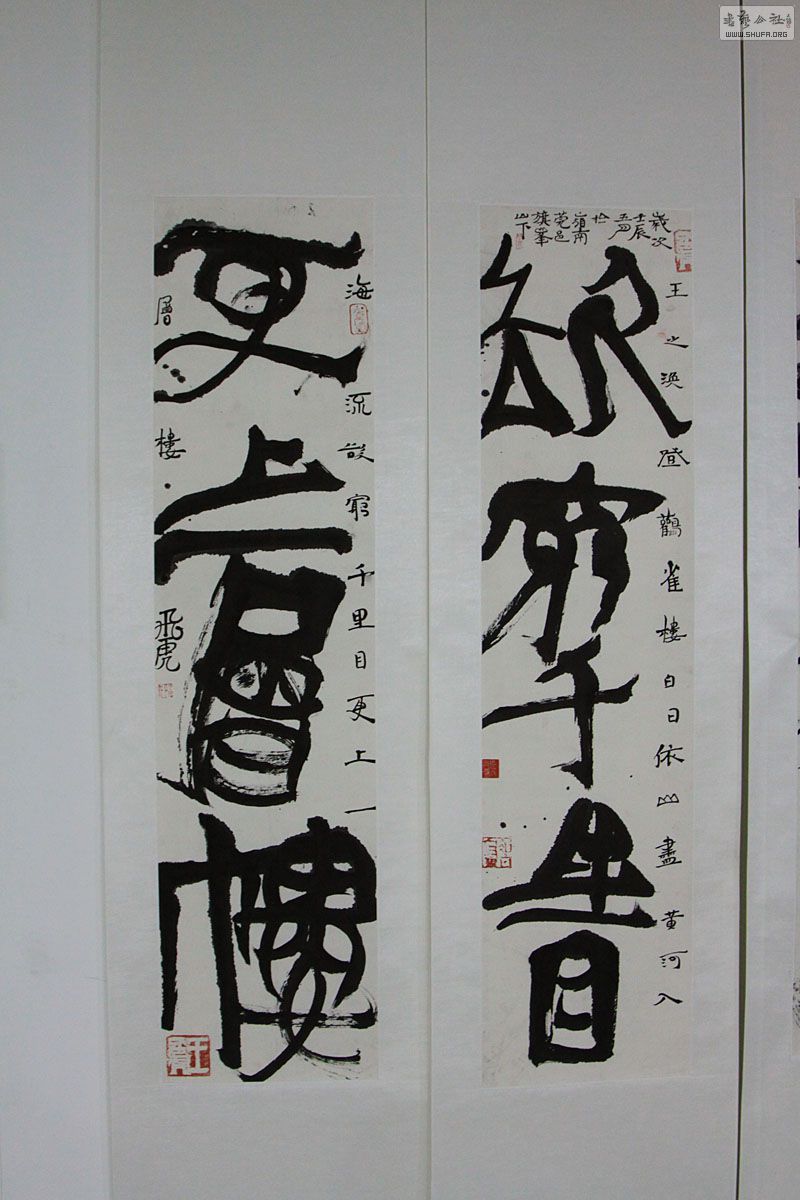 歲次
壬辰
五月
於
嶺南
莞邑
旗峯
山下
王之渙登鸛雀樓白日依山盡黄河入
欲窮千里目
海流欲窮千里目更上一
更上一層樓
層樓飛虎
書藝公社
WWW.SHUFA.ORG